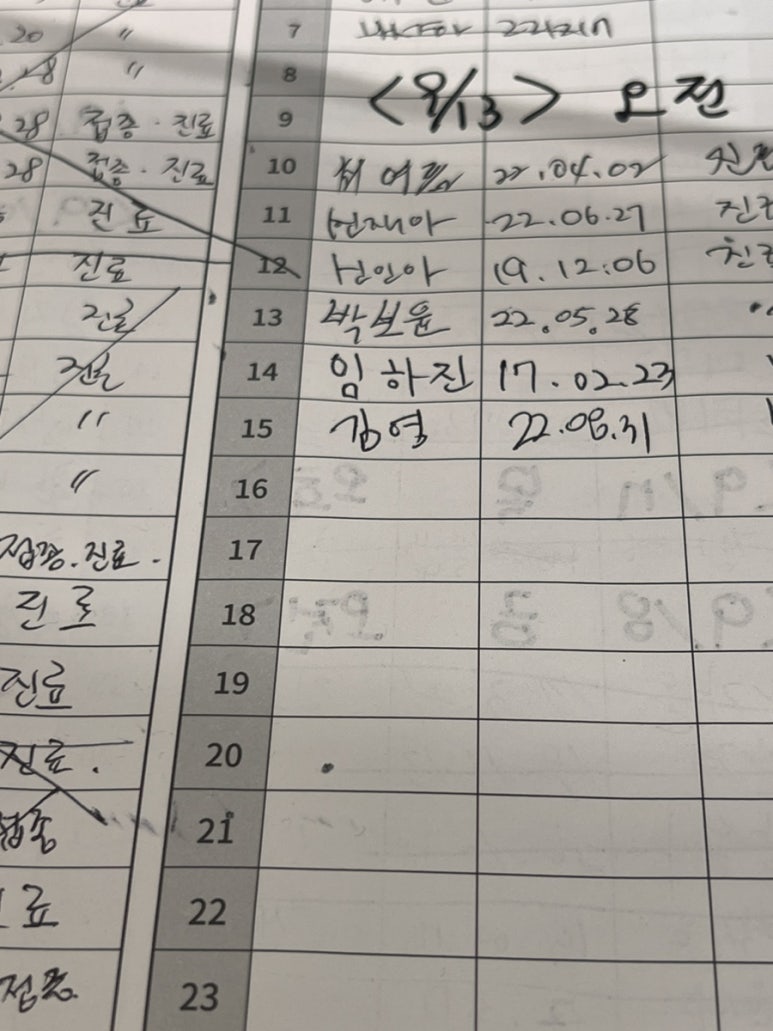 20 〃 7
28 〃 8
<8/13> 오전
28 접종·진료 9
28 접종·진료 10 여름 22.04.02
진료 11 22.06.27 진료
진료 12 19.12.06 진료
진료 13 박보윤 22.05.28
진료 14 임하진 17.02.23
〃 15 김영 22.08.31
〃 16
접종.진료. 17
진료 18
진료 19
진료. 20
접종 21
료 22
접종 23